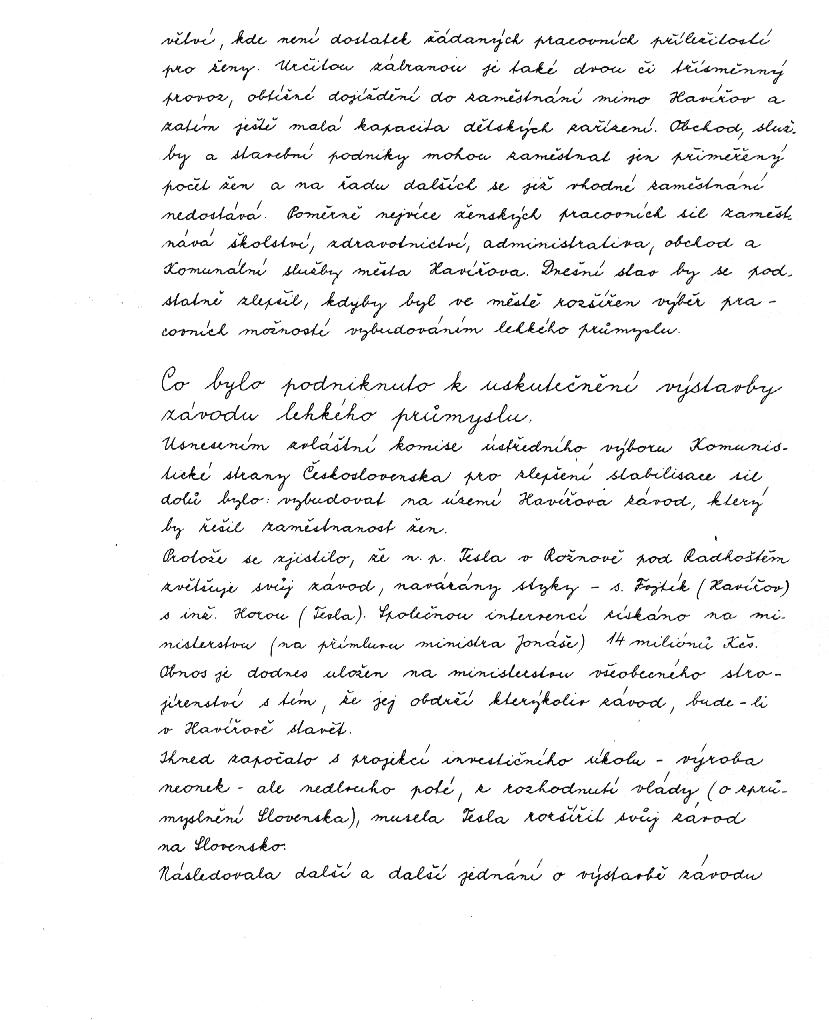 větví, kde není dostatek žádaných pracovních příležitostí
pro ženy. Určitou zábranou je také dvou či třísměnný
provoz, obtížné dojíždění do zaměstnání mimo Havířov a
zatím ještě malá kapacita dětských zařízení. Obchod, služ-
by a stavební podniky mohou zaměstnat jen přiměřený
počet žen a na řadu dalších se již vhodné zaměstnání
nedostává. Poměrně nejvíce ženských pracovních sil zaměst-
nává školství, zdravotnictví, administrativa, obchod a
Komunální služby města Havířova. Dnešní stav by se pod-
statně zlepšil, kdyby byl ve městě rozšířen výběr pra-
covních možností vybudováním lehkého průmyslu.
Co bylo podniknuto k uskutečnění výstavby
závodu lehkého průmyslu.
Usnesením zvláštní komise ústředního výboru Komunis-
tické strany Československa pro zlepšení stabilisace sil
dolů bylo: vybudovat na území Havířova závod, který
by řešil zaměstnanost žen.
Protože se zjistilo, že n. p. Tesla v Rožnově pod Radhoštěm
zvětšuje svůj závod, navázány styky - s. Fojtík (Havířov)
s inž. Horou (Tesla). Společnou intervencí získáno na mi-
nisterstvu (na přímluvu ministra Jonáše) 14 miliónů Kčs.
Obnos je dodnes uložen na ministerstvu všeobecného stro-
jírenství s tím, že jej obdrží kterýkoliv závod, bude-li
v Havířově stavět.
Ihned započato s projekcí investičního úkolu - výroba
neonek - ale nedlouho poté, z rozhodnutí vlády (o zprů-
myslnění Slovenska), musela Tesla rozšířit svůj závod
na Slovensko.
Následovala další a další jednání o výstavbě závodu